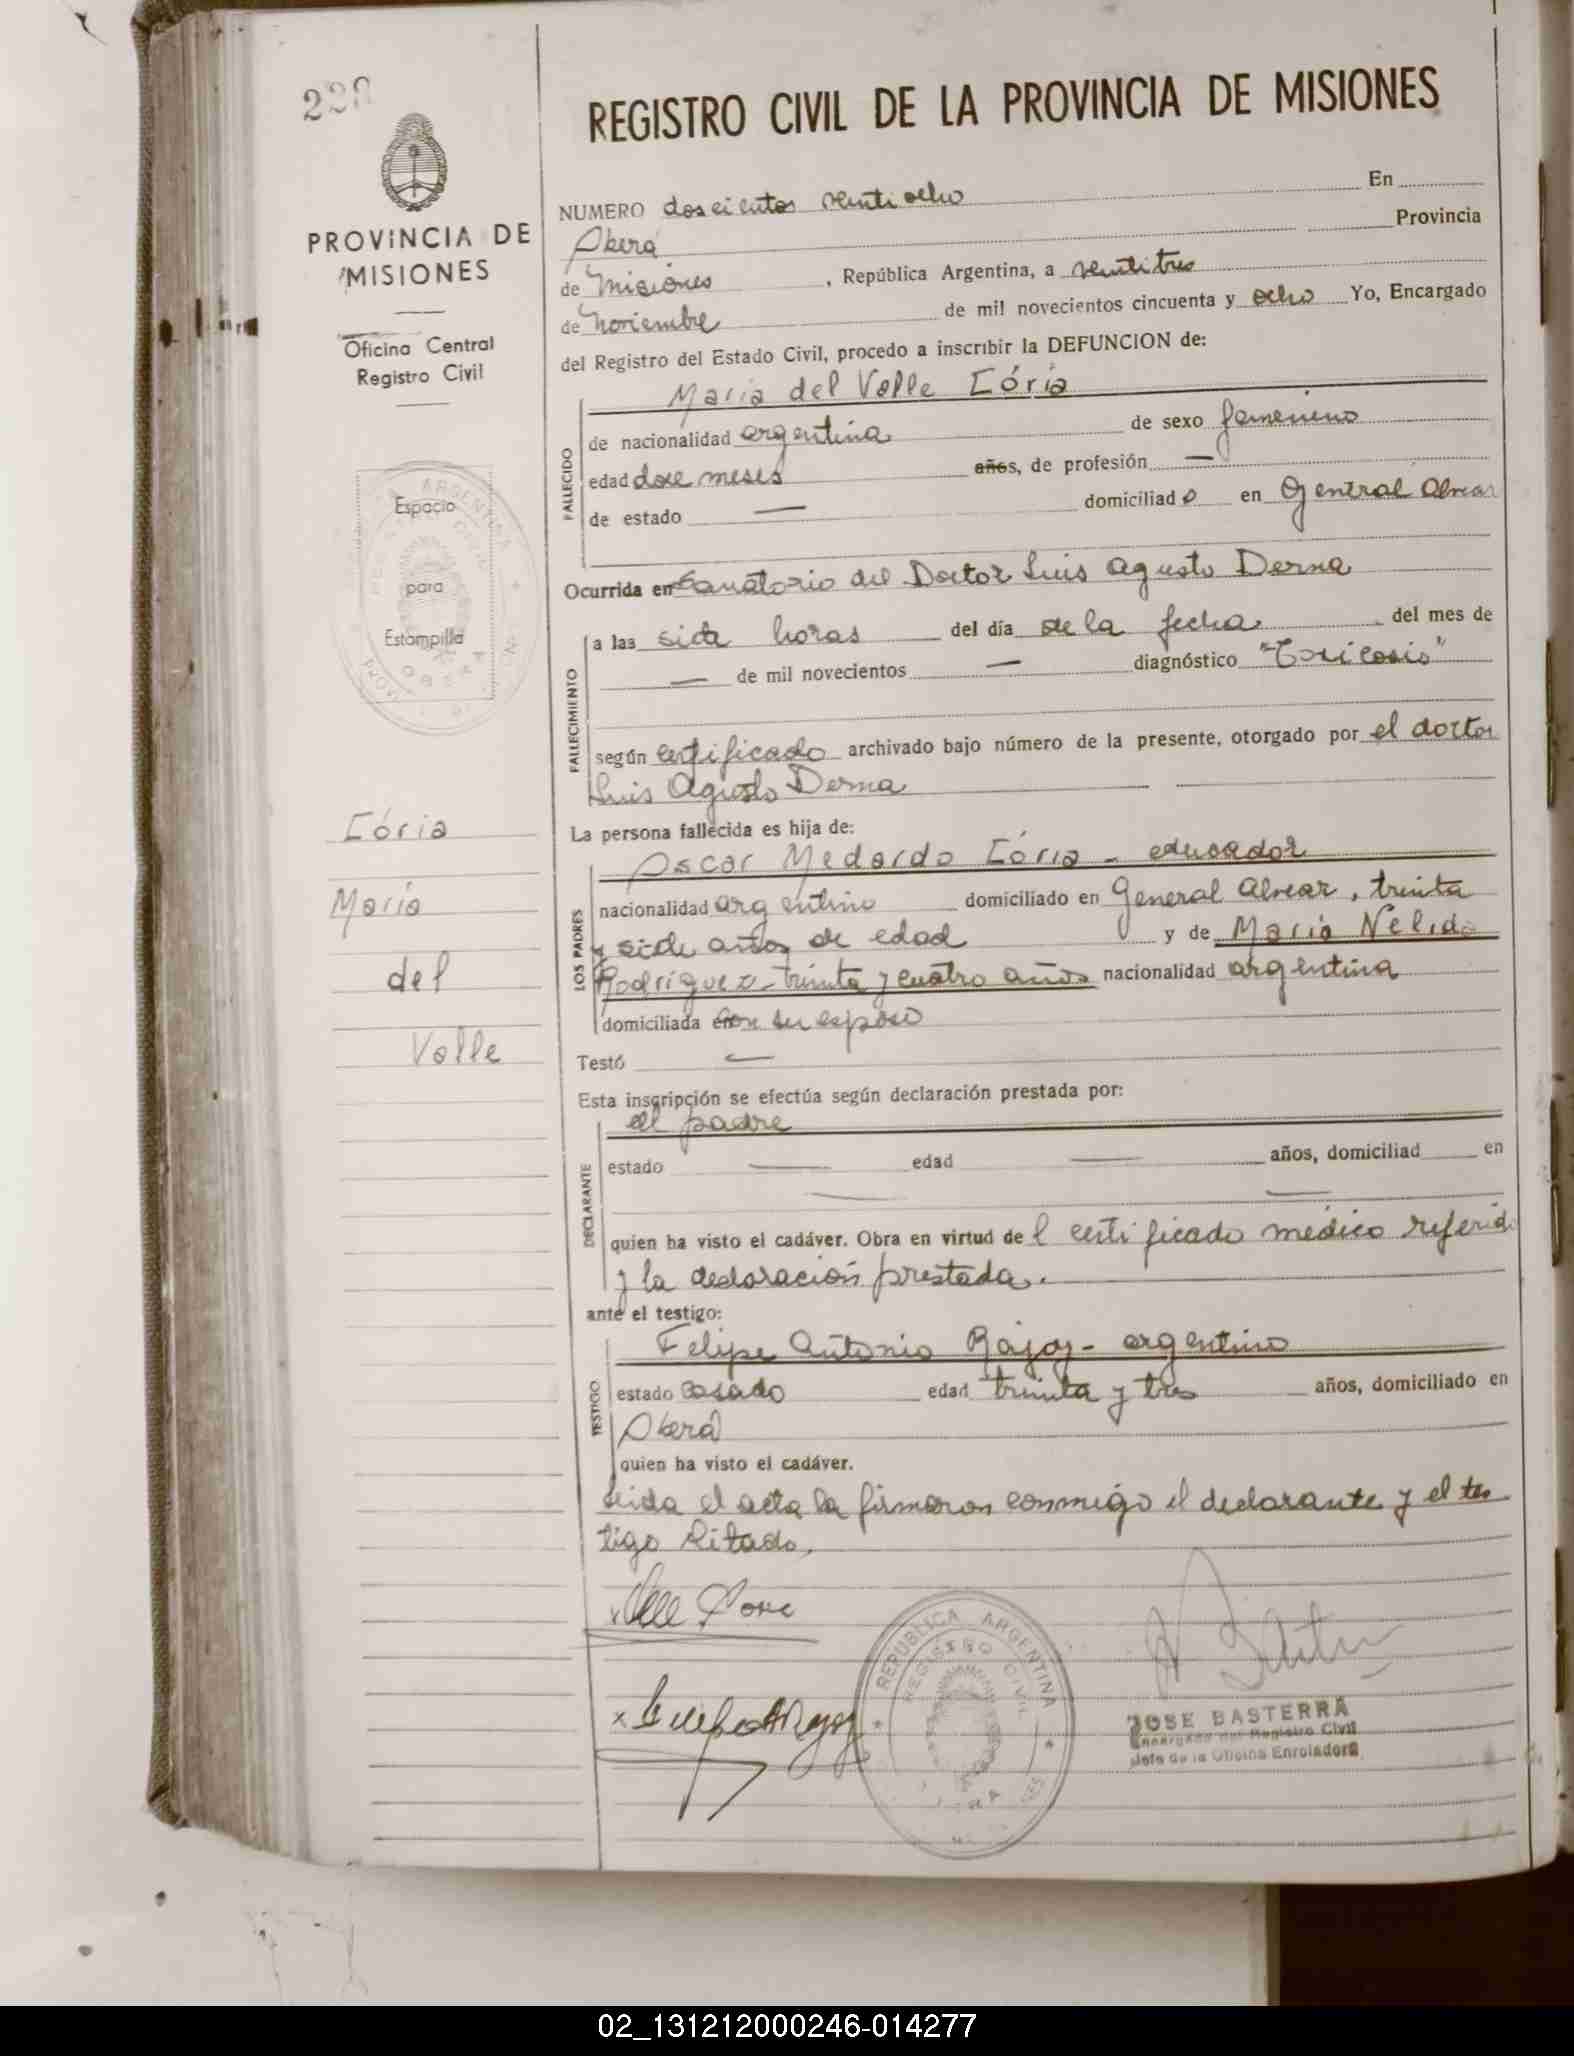 228
PROVINCIA DE
MISIONES
Oficina Central
Registro Civil
Espacio
para
Estampilla
Cória
María
del
Valle
REGISTRO CIVIL DE LA PROVINCIA DE MISIONES
NUMERO doscientos ventiocho En
Oberá Provincia
de Misiones , República Argentina, a ventitres
de Noviembre de mil novecientos cincuenta y ocho Yo, Encargado
del Registro del Estado Civil, procedo a inscribir la DEFUNCION de:
María del Valle Cória
FALLECIDO
de nacionalidad argentina de sexo femenino
edad doce meses años, de profesión —
de estado — domiciliado en General Alvear
Ocurrida en Sanatorio del Doctor Luis Agusto Derna
FALLECIMIENTO
a las siete horas del día de la fecha del mes de
— de mil novecientos — diagnóstico "Toxicosis"
según certificado archivado bajo número de la presente, otorgado por el doctor
Luis Agusto Derna
La persona fallecida es hija de:
LOS PADRES
Oscar Medardo Cória - educador
nacionalidad argentino domiciliado en General Alvear, treinta
y siete años de edad y de María Nelida
Rodriguez - treinta y cuatro años nacionalidad argentina
domiciliada en con su esposo
Testó —
Esta inscripción se efectúa según declaración prestada por:
DECLARANTE
el padre
estado — edad — años, domiciliad en
— —
quien ha visto el cadáver. Obra en virtud del certificado médico referido
y la declaración prestada.
ante el testigo:
TESTIGO
Felipe Antonio Rajoy - argentino
estado casado edad treinta y tres años, domiciliado en
Oberá
quien ha visto el cadáver.
Leida el acta la firmaron conmigo el declarante y el tes
tigo citado.
REPUBLICA ARGENTINA
REGISTRO CIVIL
JOSE BASTERRA
Encargado del Registro Civil
Jefe de la Oficina Enroladora
02_131212000246-014277